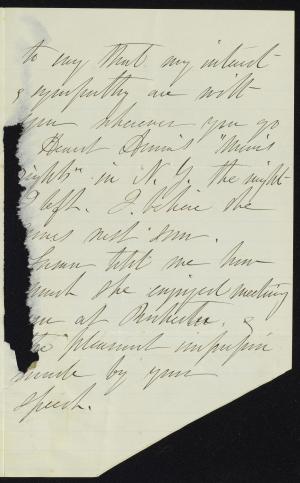 to say that my interest
& sympathy are with
you wherever you go
I Heard Anna's "Men's
Rights" in N. Y. the night
I left. I believe she
comes next
Susan told me how
much she enjoyed meeting
you at Rochester. &
the pleasant impression
made by your
speech.